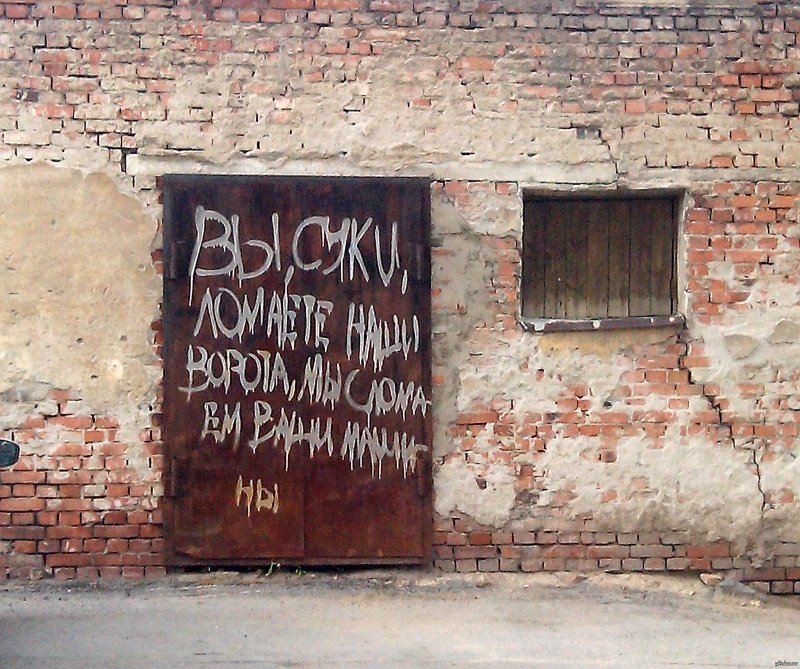 Вы, суки,
ломаете наши
ворота, мы слома-
ем ваши маши-
ны